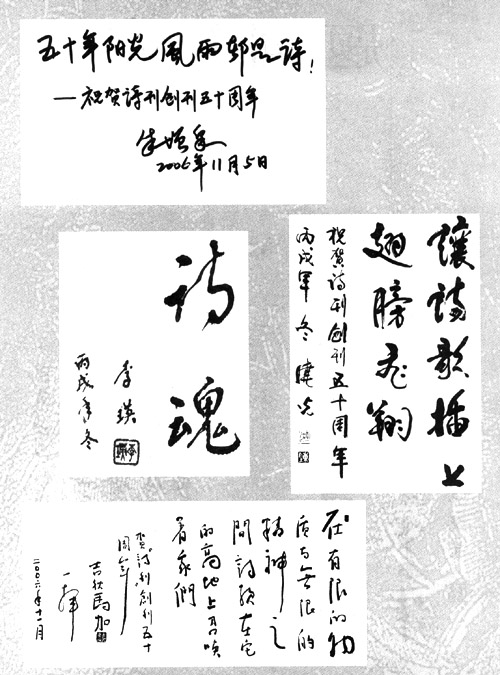 五十年阳光風雨都是诗！
—祝贺诗刊创刊五十周年
朱增泉
2006年11月5日
诗魂
李瑛
丙戌年冬
讓詩歌插上
翅膀飞翔
祝贺诗刊创刊五十周年
丙戌年冬 曉光
在有限的物
质与無限的
精神之
間詩歌在它
的高地上召唤
着我們
賀詩刊創刊五十
周年
吉狄馬加
二〇〇六年十一月